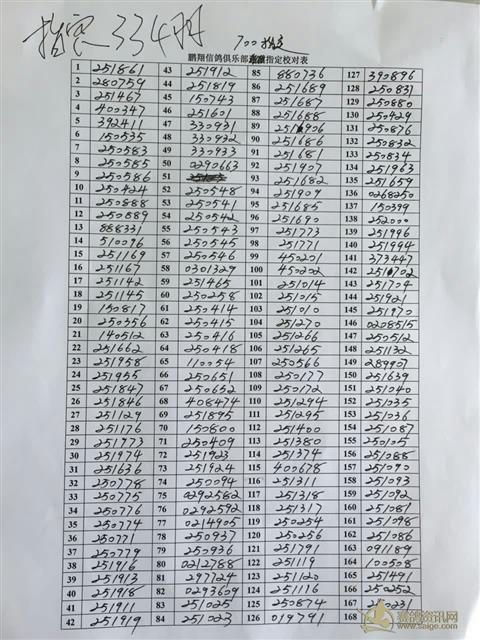 指定334羽 700指定
鹏翔信鸽俱乐部 指定校对表
1 251861 43 251912 85 880736 127 390896
2 280759 44 251819 86 251689 128 250831
3 251467 45 150743 87 251687 129 250880
4 400347 46 251601 88 251688 130 250929
5 392411 47 330931 89 251906 131 250876
6 150535 48 330932 90 251686 132 250832
7 250583 49 330933 91 251681 133 250834
8 250585 50 0290663 92 251907 134 251963
9 250586 51 93 251682 135 251659
10 250424 52 250548 94 251909 136 0268250
11 250888 53 250541 95 251685 137 150399
12 250889 54 250542 96 251690 138 252000
13 888331 55 250543 97 251773 139 251996
14 510096 56 250545 98 251771 140 251994
15 251169 57 250546 99 450201 141 373447
16 251167 58 0301329 100 450202 142 251702
17 251142 59 251465 101 251014 143 251704
18 251145 60 250258 102 251015 144 251921
19 150817 61 250414 103 251010 145 251970
20 250356 62 250415 104 251270 146 0208515
21 140512 63 250416 105 251266 147 250512
22 251662 64 250418 106 251265 148 251132
23 251958 65 110054 107 250566 149 289907
24 251955 66 250651 108 250177 150 251639
25 251847 67 250652 109 250172 151 251040
26 251846 68 408474 110 251294 152 251035
27 251129 69 251895 111 251295 153 251036
28 251176 70 150800 112 251400 154 251087
29 251973 71 250409 113 251380 155 250105
30 251974 72 251923 114 251374 156 251088
31 251636 73 251924 115 400678 157 251090
32 250778 74 250094 116 251311 158 251093
33 250775 75 0292582 117 251318 159 251092
34 250776 76 0292592 118 251317 160 251081
35 250774 77 0214905 119 250254 161 251098
36 250771 78 250937 120 250256 162 251086
37 250779 79 250936 121 251791 163 091189
38 251916 80 0212788 122 251119 164 100508
39 251913 81 297724 123 251120 165 251491
40 251918 82 0293609 124 251116 166 250252
41 251911 83 251025 125 250874 167 250231
42 251919 84 251023 126 019791 168
赛鸽资讯网
www.saige.com